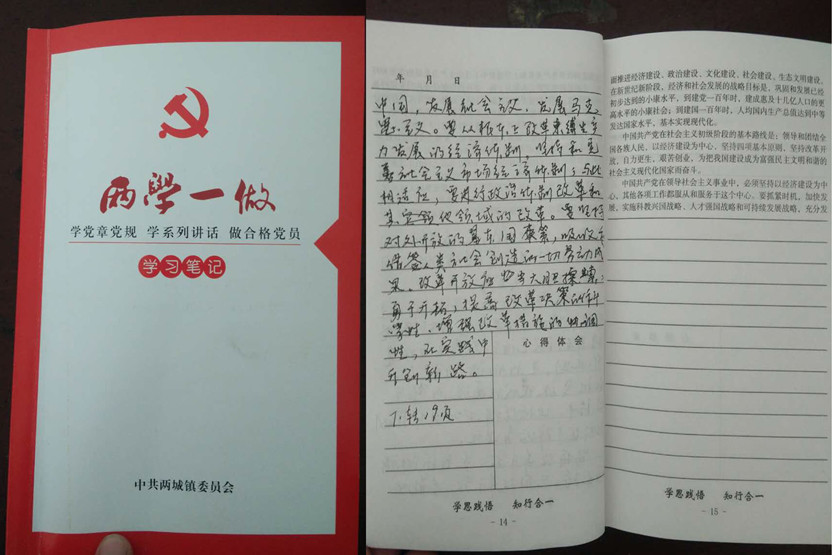 两學一做
学党章党规 学系列讲话 做合格党员
学习笔记
中共两城镇委员会
年 月 日
中国，发展社会主义，发展马克
思主义。要从根本上改革束缚生产
力发展的经济体制，坚持和完
善社会主义市场经济体制；与此
相适应，要进行政治体制改革和
其它领他领域的改革。要坚持
对外开放的基本国策，吸收和
借鉴人类社会创造的一切劳动成
果。改革开放应当大胆探索，
勇于开拓，提高改革决策的科
学性，增强改革措施的协调
性，在实践中
开创新路。
下转19页
心得体会
学思践悟 知行合一
- 14 -
面推进经济建设、政治建设、文化建设、社会建设、生态文明建设。
在新世纪新阶段，经济和社会发展的战略目标是，巩固和发展已经
初步达到的小康水平，到建党一百年时，建成惠及十几亿人口的更
高水平的小康社会；到建国一百年时，人均国内生产总值达到中等
发达国家水平，基本实现现代化。
中国共产党在社会主义初级阶段的基本路线是：领导和团结全
国各族人民，以经济建设为中心，坚持四项基本原则，坚持改革开
放，自力更生，艰苦创业，为把我国建设成为富强民主文明和谐的
社会主义现代化国家而奋斗。
中国共产党在领导社会主义事业中，必须坚持以经济建设为中
心，其他各项工作都服从和服务于这个中心。要抓紧时机，加快发
展，实施科教兴国战略、人才强国战略和可持续发展战略，充分发
学思践悟 知行合一
- 15 -